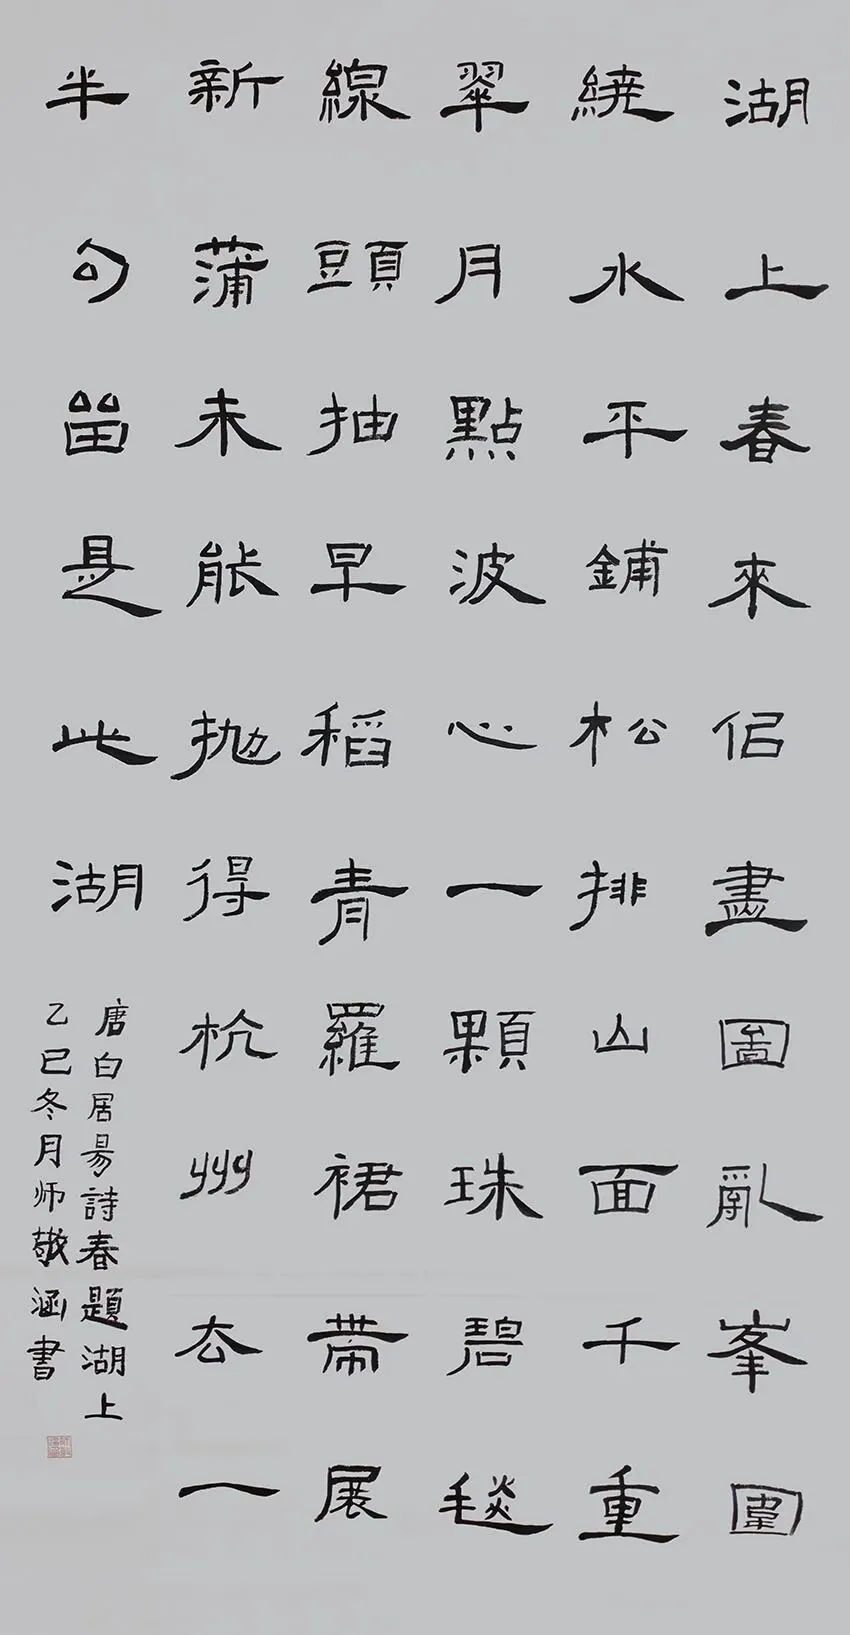 湖上春來侣畫圖亂峯圍
繞水平鋪松排山面千重
翠月點波心一顆珠碧毯
線頭抽早稻青羅裙帶展
新蒲未能抛得杭州去一
半句留是此湖
唐白居易詩春題湖上
乙巳冬月师敬涵書